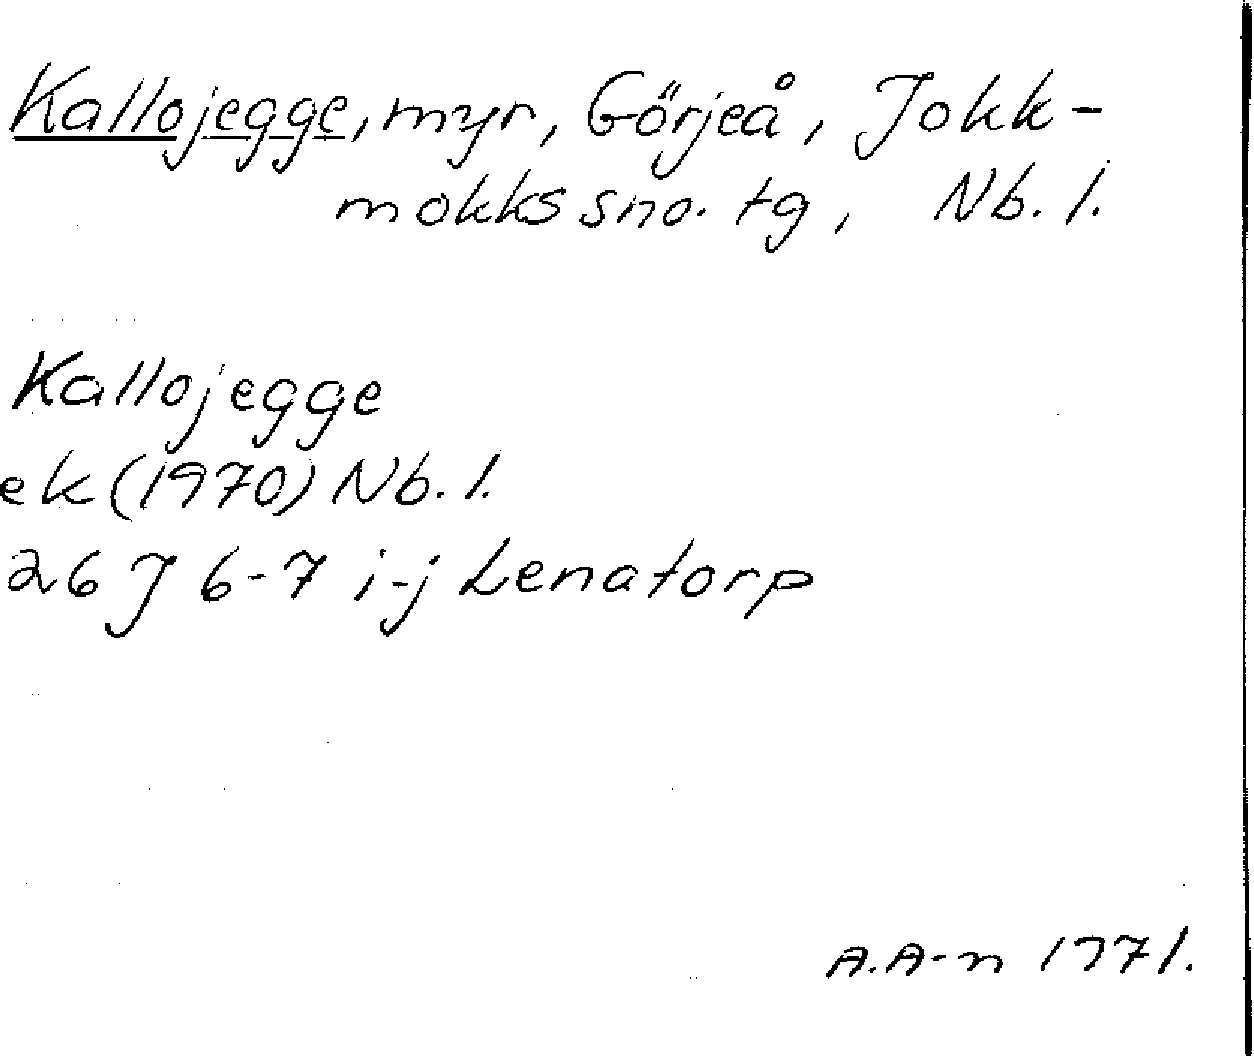 Kallojegge, myr, Görjeå, Jokk-
mokks sno. tg, Nb. l.
Kallojegge
ek (1970) Nb. l.
26 J 6-7 i-j Lenatorp
A.A-n 1971.